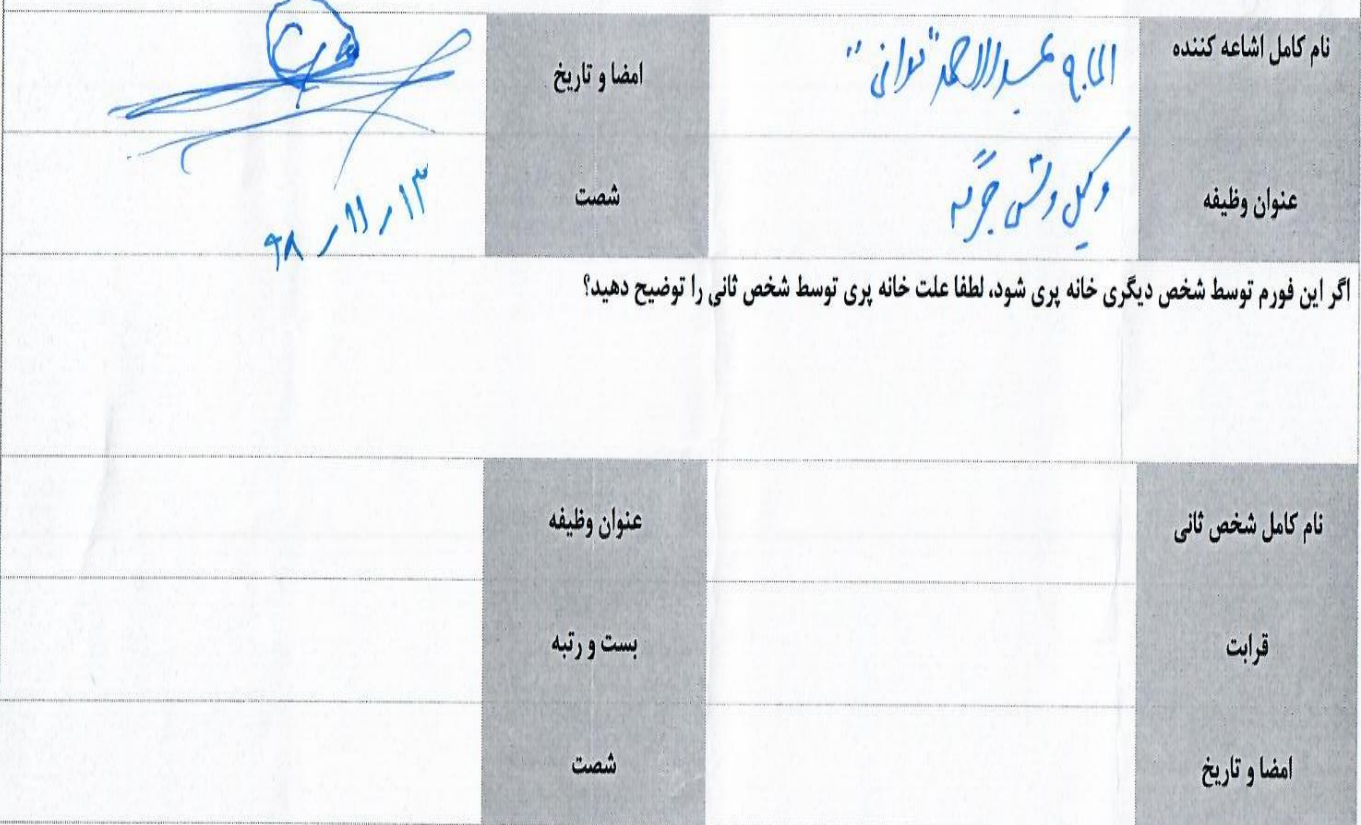 نام کامل اشاعه کننده
الحاج عبدالاحد "
امضا و تاریخ
عنوان وظیفه
وکیل ولسی جرگه
شصت
۹۸ / ۱۱ / ۱۳
اگر این فورم توسط شخص دیگری خانه پری شود، لطفا علت خانه پری توسط شخص ثانی را توضیح دهید؟
نام کامل شخص ثانی
عنوان وظیفه
قرابت
بست و رتبه
امضا و تاریخ
شصت